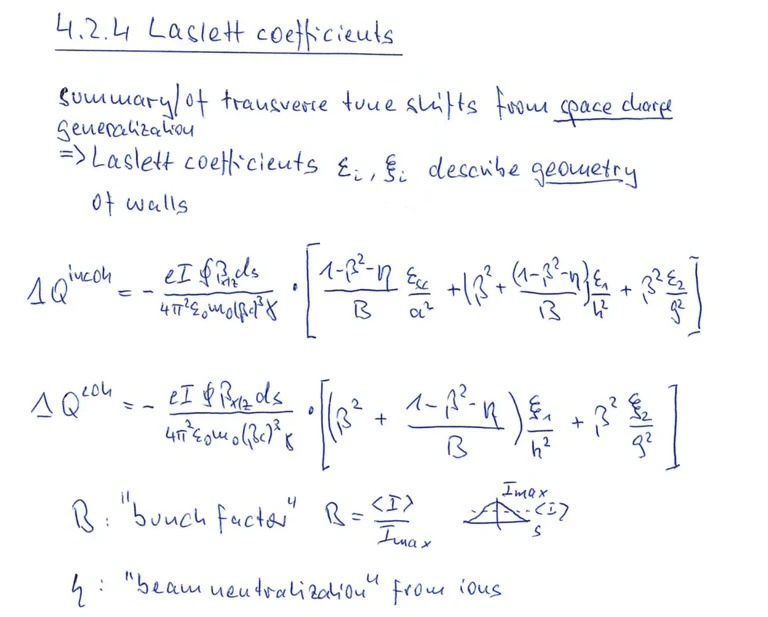 4.2.4 Laslett coefficients
summary/of transverse tune shifts from space charge
generalization
=> Laslett coefficients εᵢ, ξᵢ describe geometry
of walls
ΔQ^incoh = - eI ∮β_x/z ds / 4π²ε₀m₀(βc)³γ · [ (1-β²-η)/B ε_sc/a² + (β² + (1-β²-η)/B) ε₁/h² + β² ε₂/g² ]
ΔQ^coh = - eI ∮β_x/z ds / 4π²ε₀m₀(βc)³γ · [ (β² + (1-β²-η)/B) ξ₁/h² + β² ξ₂/g² ]
Imax
B : "bunch factor" B = <I>/Imax <I>
s
η : "beam neutralization" from ions